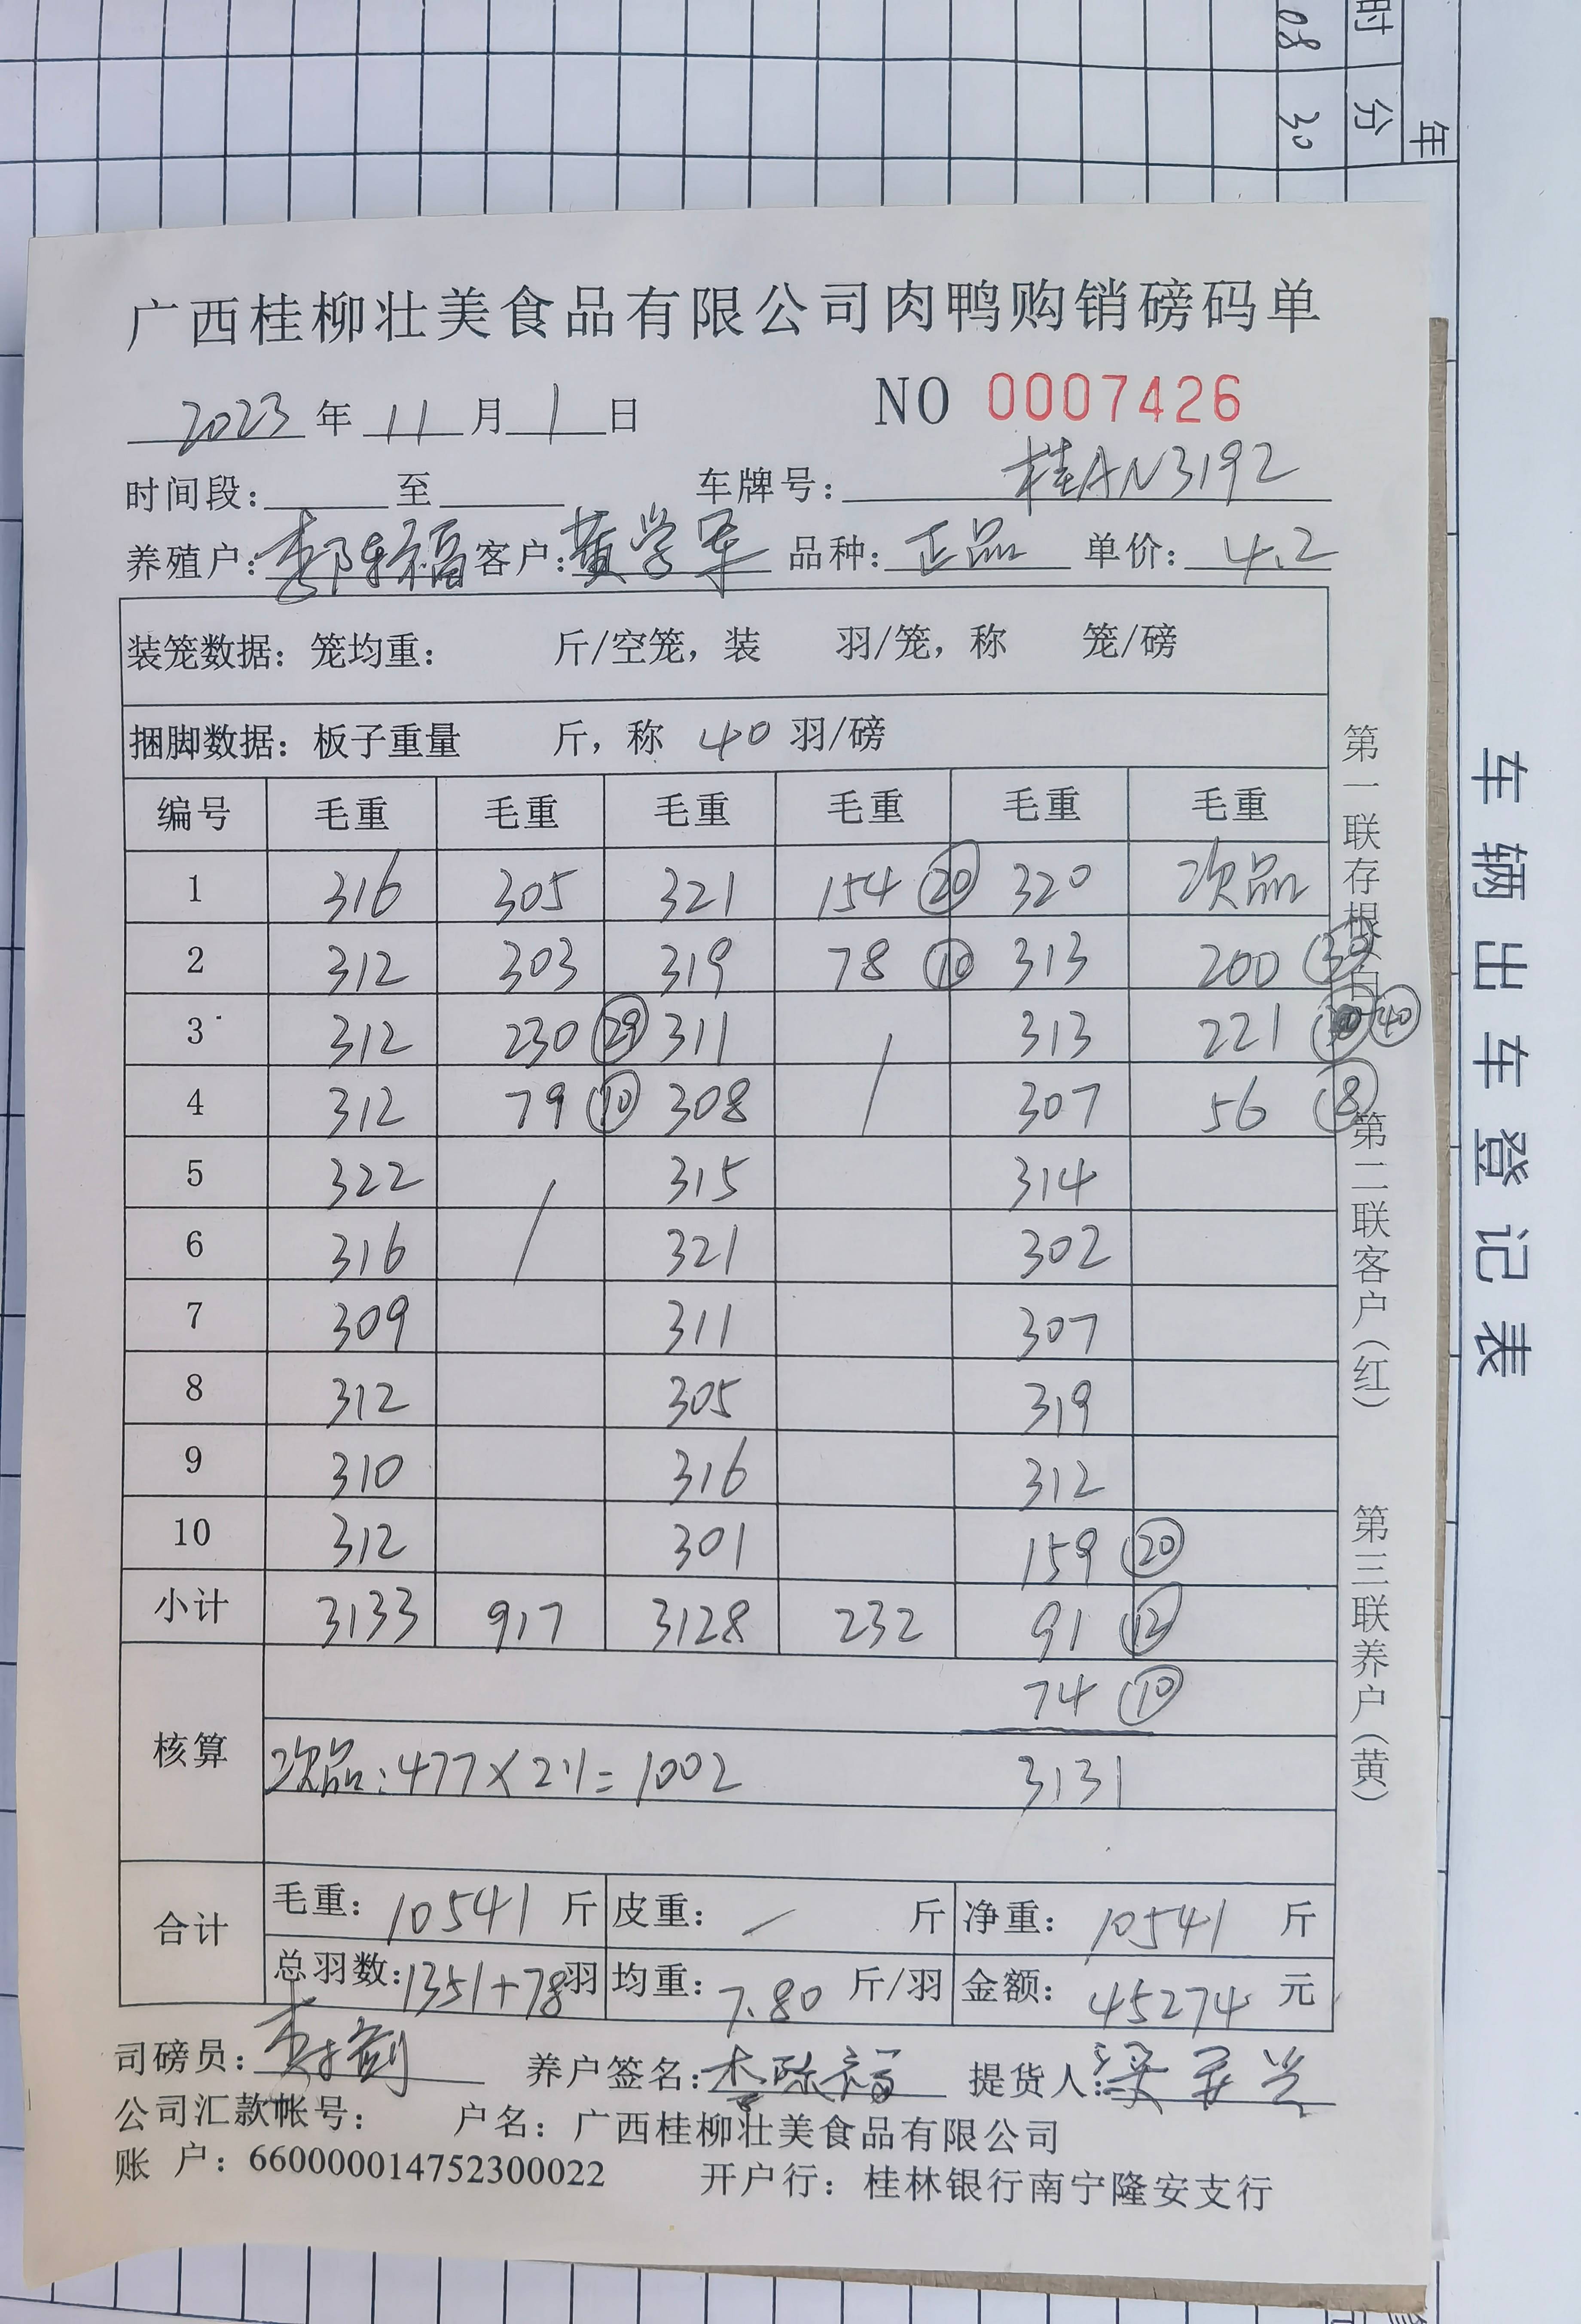 时 分 年
08 30
广西桂柳壮美食品有限公司肉鸭购销磅码单
2023 年 11 月 1 日 NO 0007426
时间段: 至 车牌号: 桂AN3192
养殖户: 福 客户: 黄学军 品种: 正品 单价: 4.2
装笼数据: 笼均重: 斤/空笼, 装 羽/笼, 称 笼/磅
捆脚数据: 板子重量 斤, 称 40 羽/磅
编号 毛重 毛重 毛重 毛重 毛重 毛重
1 316 305 321 154 ⑳ 320 次品
2 312 303 319 78 ⑩ 313 200 ㉚
3 312 230 ㉙ 311 / 313 221 ㊵
4 312 79 ⑩ 308 307 56 ⑧
5 322 / 315 314
6 316 321 302
7 309 311 307
8 312 305 319
9 310 316 312
10 312 301 159 ⑳
小计 3133 917 3128 232 91 ⑫
74 ⑩
核算 次品:477×2.1=1002 3131
合计 毛重: 10541 斤 皮重: / 斤 净重: 10541 斤
总羽数: 1351+78 羽 均重: 7.80 斤/羽 金额: 45274 元
司磅员: 养户签名: 李 福 提货人: 梁
公司汇款帐号: 户名: 广西桂柳壮美食品有限公司
账 户: 660000014752300022 开户行: 桂林银行南宁隆安支行
第一联存根 白
第二联客户(红)
第三联养户(黄)
车辆出车登记表